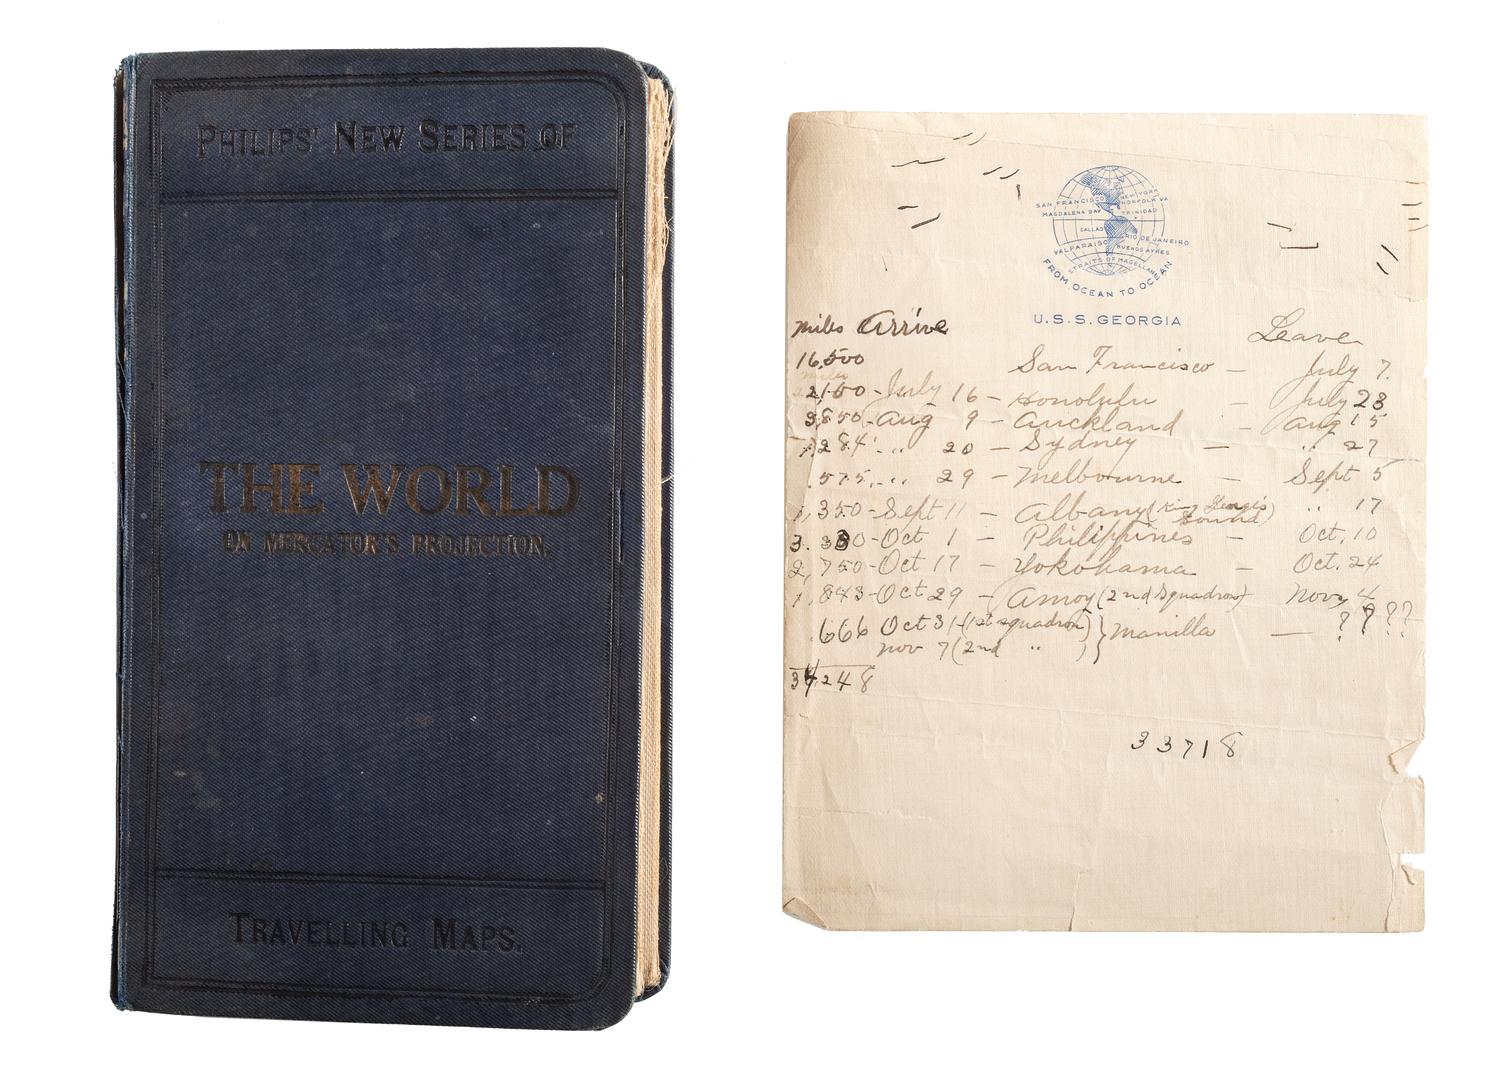 PHILIPS' NEW SERIES OF
THE WORLD
ON MERCATOR'S PROJECTION.
TRAVELLING MAPS.
SAN FRANCISCO NEW YORK
NORFOLK VA
MAGDALENA BAY TRINIDAD
CALLAO
RIO DE JANEIRO
VALPARAISO BUENOS AYRES
STRAITS OF MAGELLAN
FROM OCEAN TO OCEAN
U.S.S. GEORGIA
Miles Arrive Leave
16,500 San Francisco — July 7.
miles
2,100 - July 16 — Honolulu — July 23
3,850 - Aug 9 — Auckland — Aug 15
1,284 " 20 — Sydney — " 27
575 " 29 — Melbourne — Sept 5
1,350 - Sept 11 — Albany (King George's Sound) " 17
3.330 - Oct 1 — Philippines — Oct. 10
2,750 - Oct 17 — Yokohama — Oct. 24
1,843 - Oct 29 — Amoy (2nd Squadron) Nov 4
666 Oct 31 (1st squadron) } Manilla — ? ? ? ?
Nov 7 (2nd " )
34,248
33718